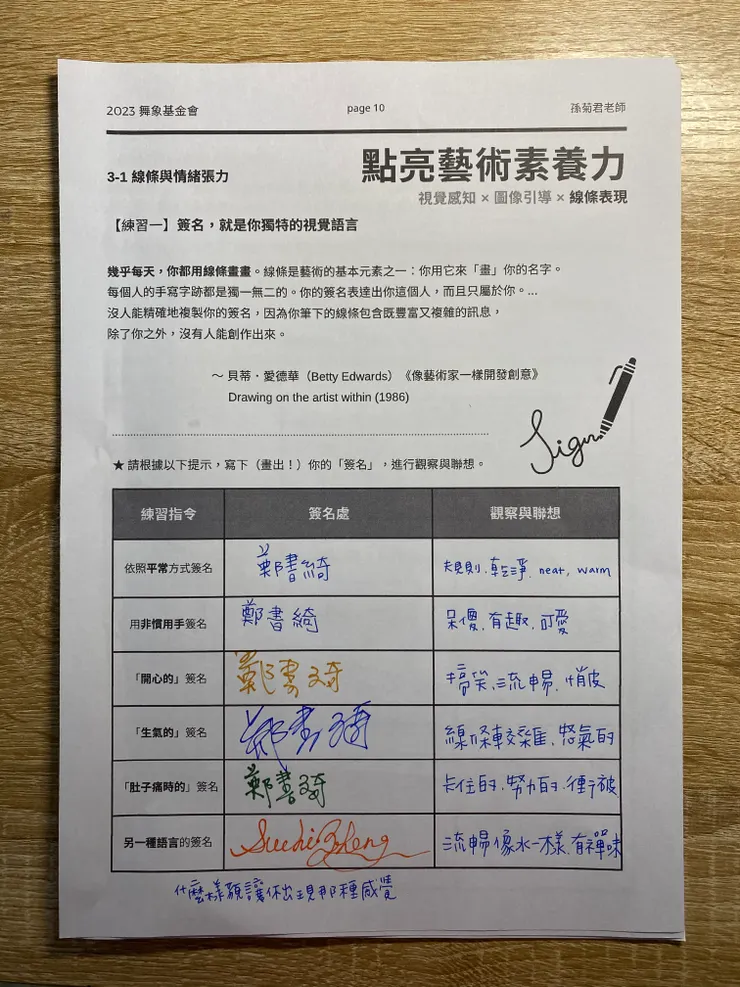 2023 舞象基金會 page 10 孫菊君老師
點亮藝術素養力
3-1 線條與情緒張力
視覺感知 × 圖像引導 × 線條表現
【練習一】簽名，就是你獨特的視覺語言
幾乎每天，你都用線條畫畫。線條是藝術的基本元素之一：你用它來「畫」你的名字。
每個人的手寫字跡都是獨一無二的。你的簽名表達出你這個人，而且只屬於你。...
沒人能精確地複製你的簽名，因為你筆下的線條包含既豐富又複雜的訊息，
除了你之外，沒有人能創作出來。
～ 貝蒂．愛德華（Betty Edwards）《像藝術家一樣開發創意》
Drawing on the artist within (1986)
Sign
★ 請根據以下提示，寫下（畫出！）你的「簽名」，進行觀察與聯想。
練習指令 簽名處 觀察與聯想
依照平常方式簽名 鄭書綺 規則、乾淨, neat, warm
用非慣用手簽名 鄭書綺 呆傻、有趣、可愛
「開心的」簽名 鄭書琦 搞笑、流暢、俏皮
「生氣的」簽名 鄭書琦 線條較雜、怒氣的
「肚子痛時的」簽名 鄭書琦 卡住的、努力的、
另一種語言的簽名 流暢像水一樣、有禪味
什麼樣 讓你出現那種感覺